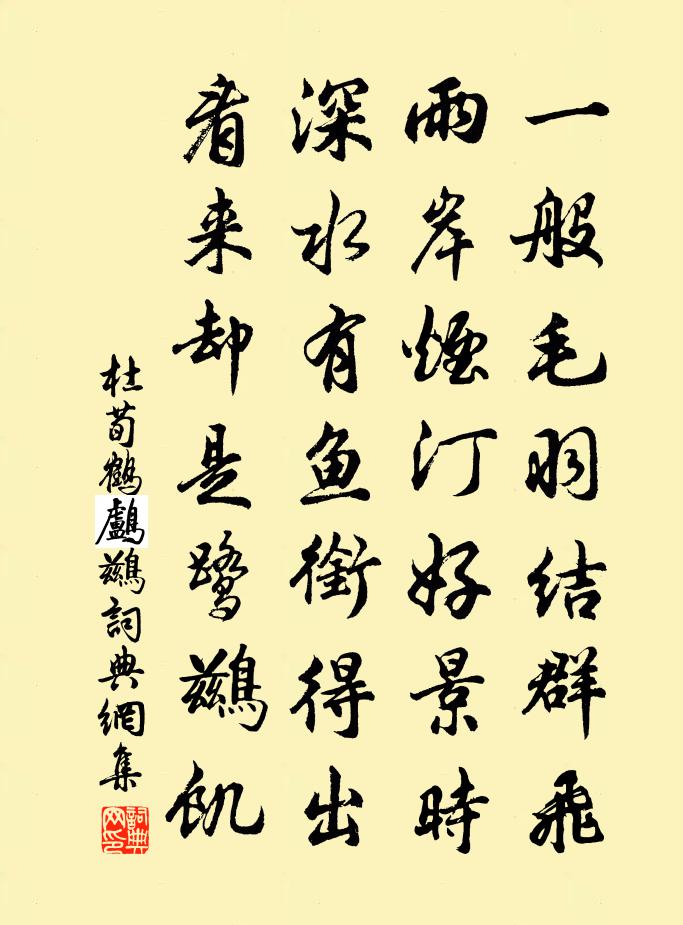 一般毛羽结群飛
兩岸煙汀好景時
深水有鱼銜得出
看来却是鹭鷀飢
杜荀鶴鸕鷀詞典網集
詞典网印